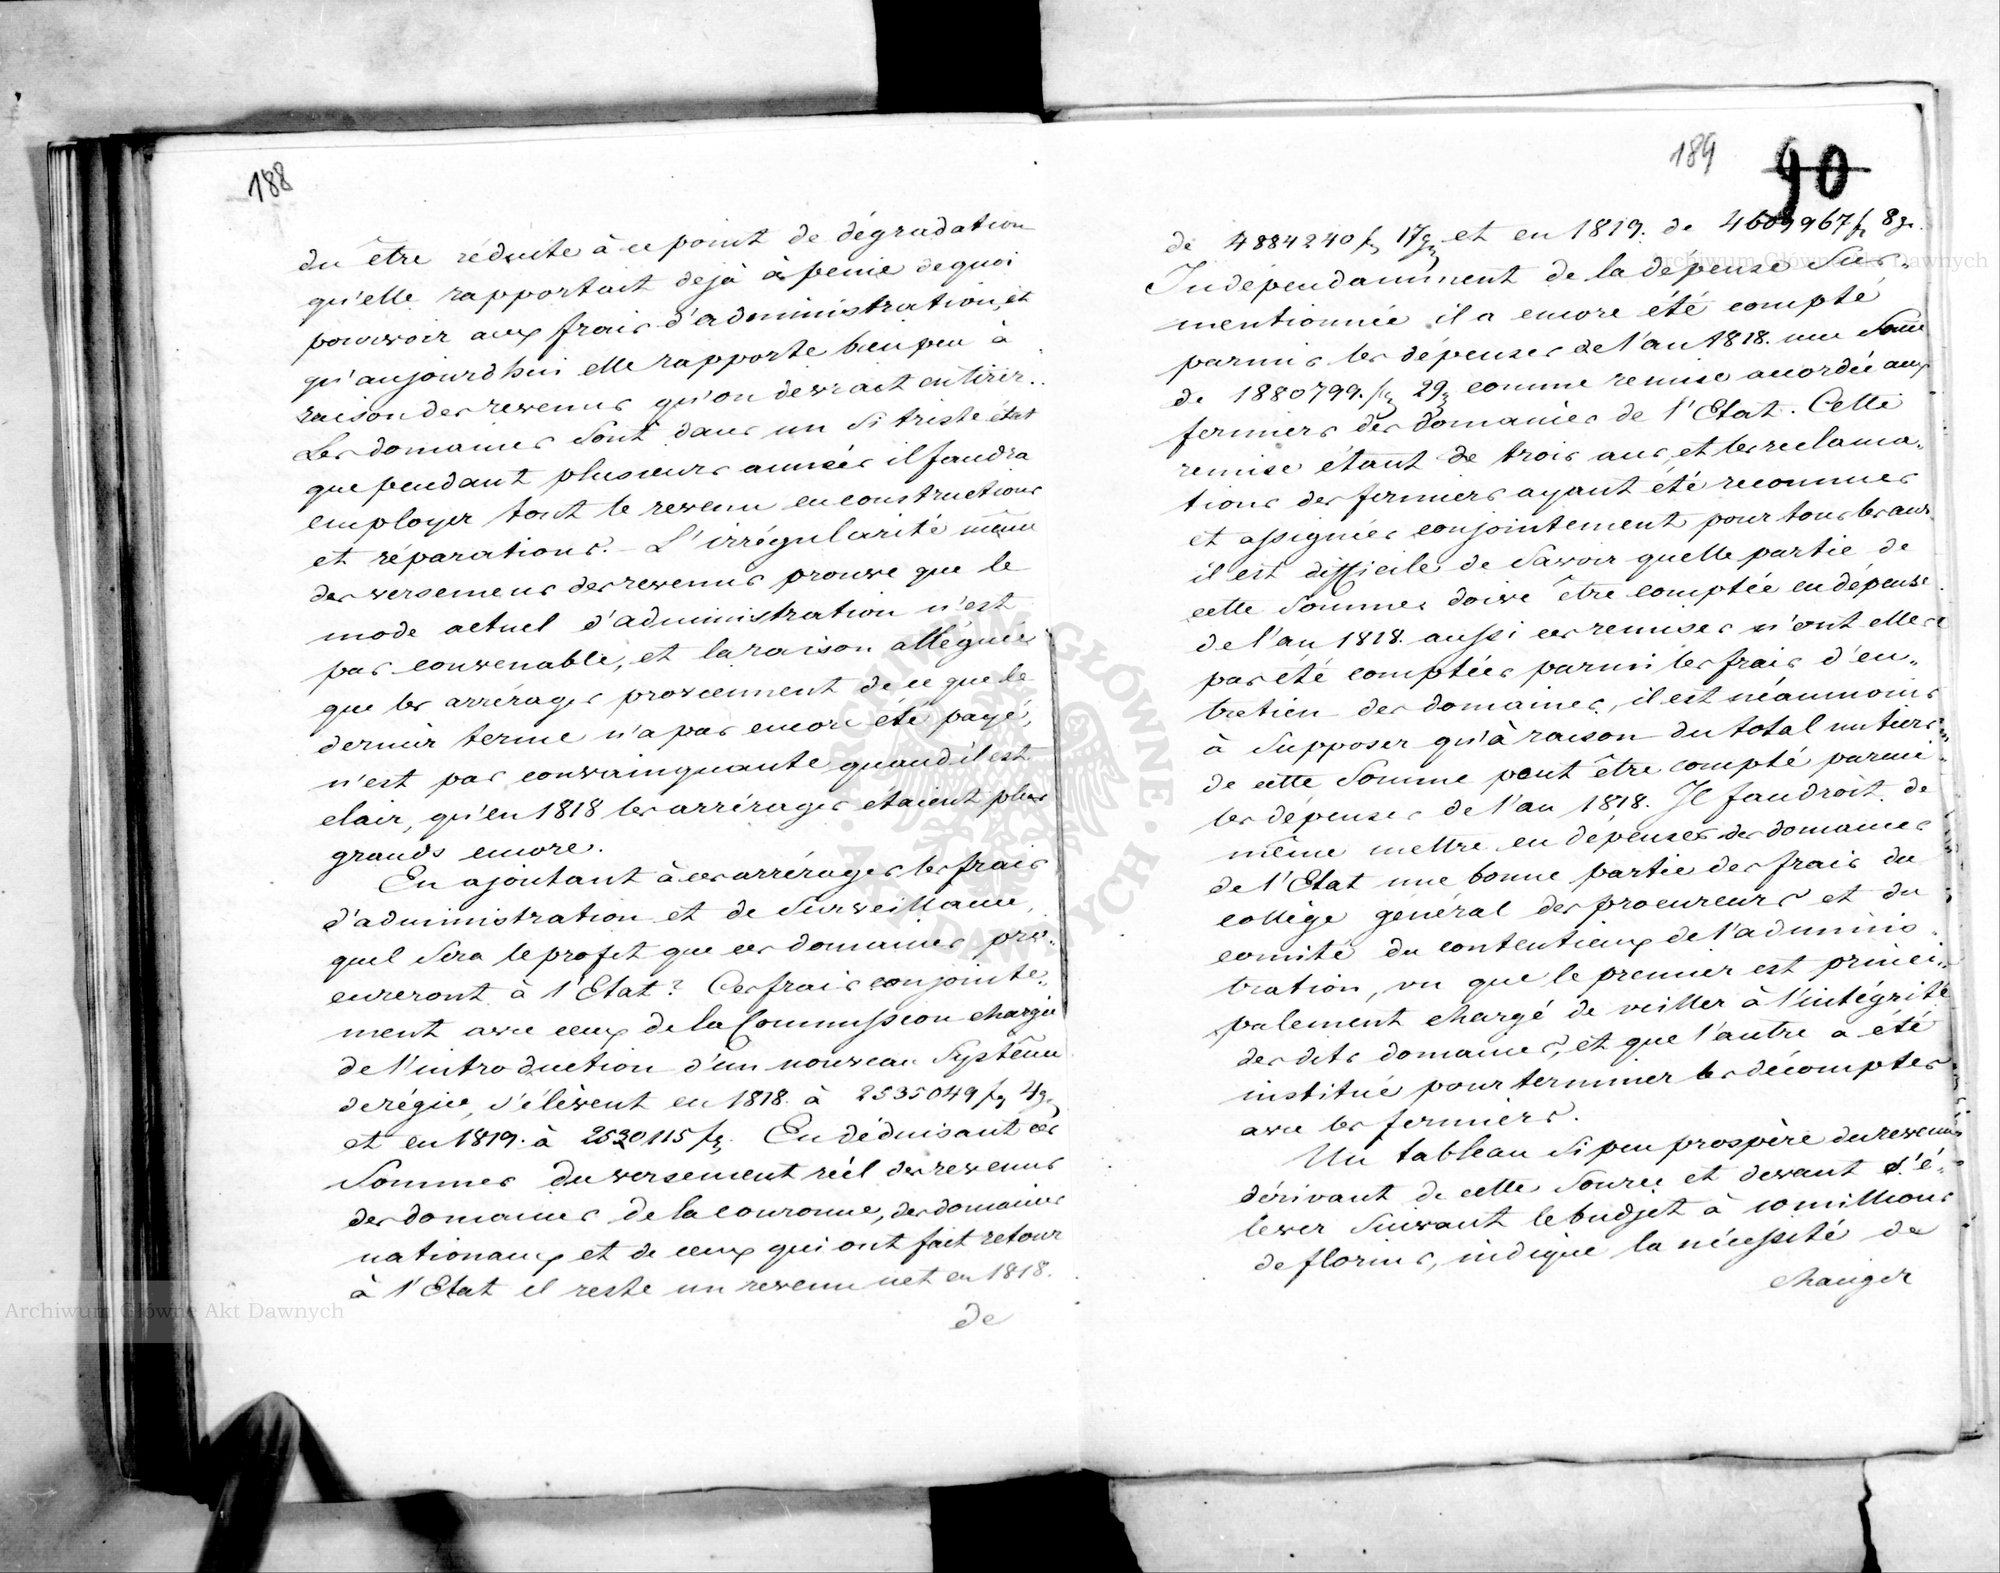 188
du être réduite à ce point de dégradation
qu'elle rapportait dejà à peine de quoi
pourvoir aux frais d'administration, et
qu'aujourdhui elle rapporte bien peu à
raison des revenus qu'on devrait en tirer..
Les domaines sont dans un si triste état
que pendant plusieurs années il faudra
employer tout le revenu en constructions
et réparations. – L'irrégularité même
des versemens des revenus prouve que le
mode actuel d'administration n'est
pas convenable, et la raison alléguée
que les arrérages proviennent de ce que le
dernier terme n'a pas encore été payé,
n'est pas convainquante quand il est
clair, qu'en 1818 les arrérages étaient plus
grands encore.
En ajoutant à ces arrérages les frais
d'administration et de surveillance,
quel sera le profit que ces domaines pro„
cureront à l'Etat? Ces frais conjointe„
ment avec ceux de la Commission chargée
de l'introduction d'un nouveau Systême
de régie, s'élèvent en 1818. à 2535049 f. 4 g.
et en 1819. à 2530115 f. En déduisant ces
sommes du versement réel des revenus
des domaines de la couronne, des domaines
nationaux et de ceux qui ont fait retour
à l'Etat il reste un revenu net en 1818.
de
189
90
de 4884240 f. 17 g. et en 1819. de 4609967 f. 8 g.
Indépendamment de la dépense sus„
mentionnée il a encore été compté
parmis les dépenses de l'an 1818. une Somme
de 1880799. f. 29 g. comme remise accordée aux
fermiers des domaines de l'Etat. Cette
remise étant de trois ans, et les reclama„
tions des fermiers ayant été reconnues
et assignées conjointement pour tous les ans
il est difficile de savoir quelle partie de
cette somme doive être comptée en dépense
de l'an 1818. aussi ces remises n'ont elles
pas été comptées parmi les frais d'en„
tretien des domaines, il est néanmoins
à supposer qu'à raison du total un tiers
de cette somme peut être compté parmi
les dépenses de l'an 1818. Il faudroit de
même mettre en dépenses des domaines
de l'Etat une bonne partie des frais du
collège général des procureurs et du
comité du contentieux de l'adminis„
tration, vu que le premier est princi„
palement chargé de veiller à l'intégrité
des dits domaines, et que l'autre a été
institué pour terminer les décomptes
avec les fermiers.
Un tableau si peu prospère du revenu
dérivant de cette source et devant s'é„
lever suivant le budjet à 10 millions
de florins, indique la nécessité de
changer
Archiwum Główne Akt Dawnych
Archiwum Główne Akt Dawnych
ARCHIWUM GŁÓWNE AKT DAWNYCH